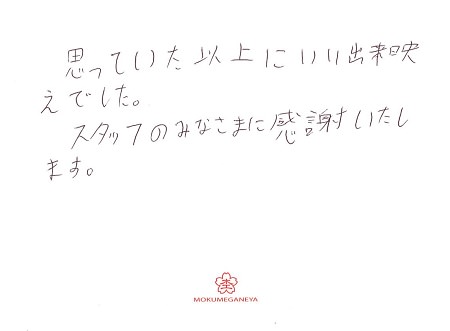 思っていた以上にいい出来映
えでした。
スタッフのみなさまに感謝いたし
ます。
MOKUMEGANEYA